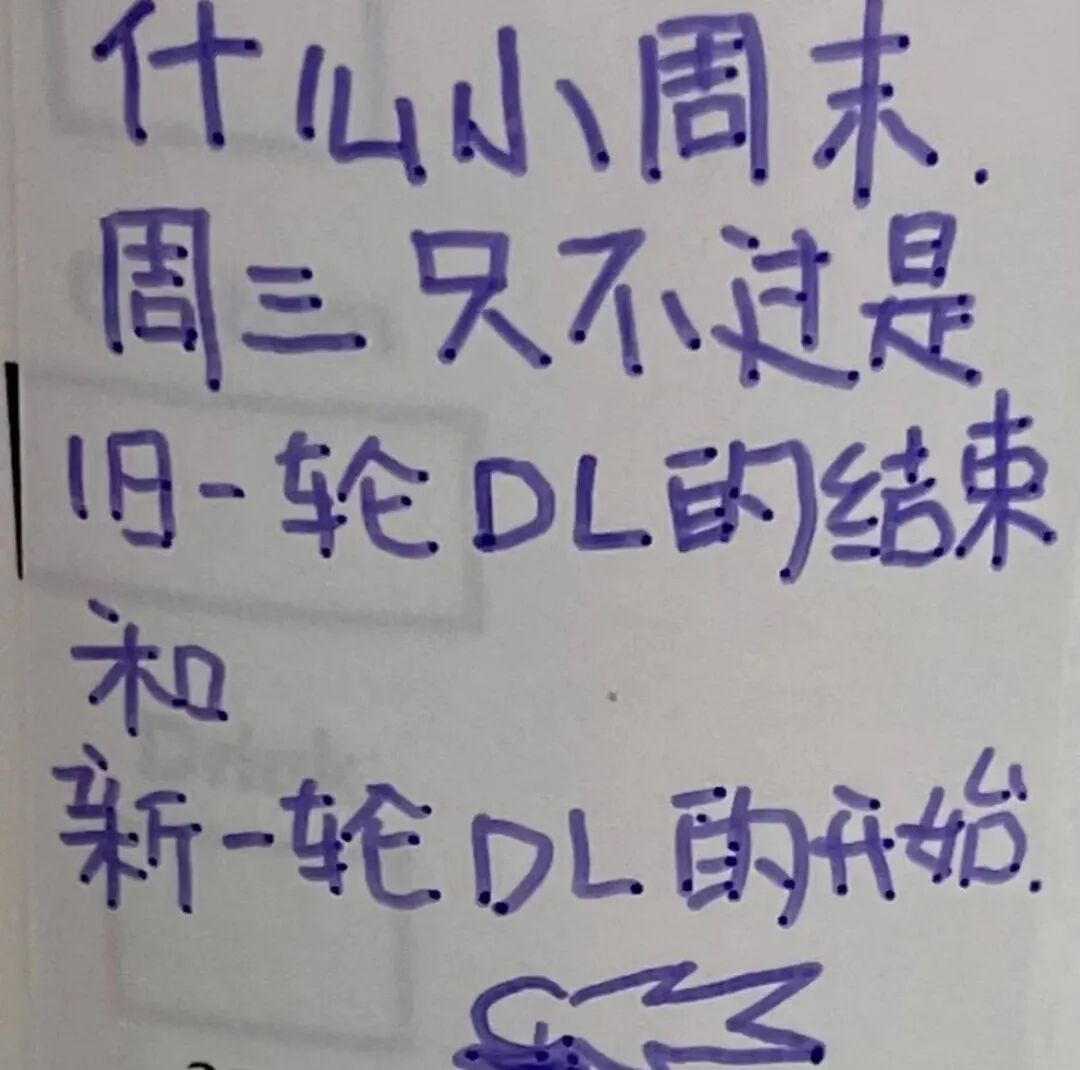 什么小周末.
周三只不过是
旧一轮DL的结束
和
新一轮DL的开始.